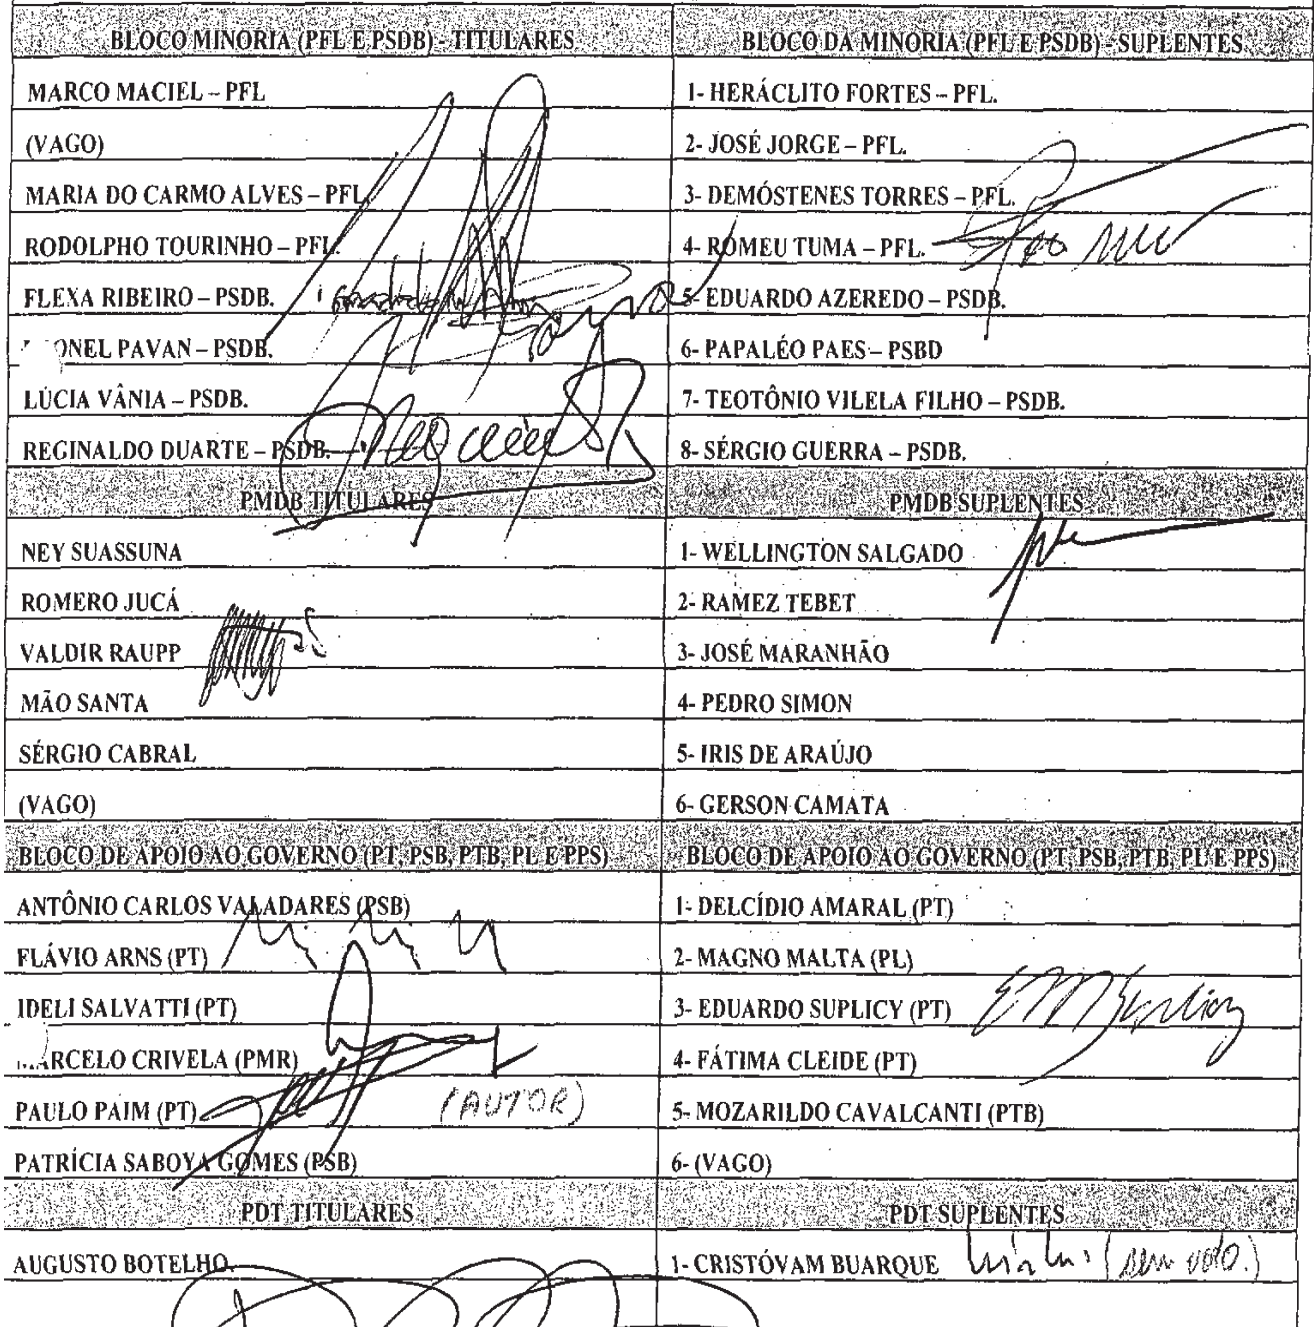 BLOCO MINORIA (PFL E PSDB) - TITULARES
BLOCO DA MINORIA (PFL E PSDB) - SUPLENTES
MARCO MACIEL – PFL
1- HERÁCLITO FORTES – PFL.
(VAGO)
2- JOSÉ JORGE – PFL.
MARIA DO CARMO ALVES – PFL
3- DEMÓSTENES TORRES – PFL.
RODOLPHO TOURINHO – PFL.
4- ROMEU TUMA – PFL.
FLEXA RIBEIRO – PSDB.
5- EDUARDO AZEREDO – PSDB.
ONEL PAVAN – PSDB.
6- PAPALÉO PAES – PSBD
LÚCIA VÂNIA – PSDB.
7- TEOTÔNIO VILELA FILHO – PSDB.
REGINALDO DUARTE – PSDB.
8- SÉRGIO GUERRA – PSDB.
PMDB TITULARES
PMDB SUPLENTES
NEY SUASSUNA
1- WELLINGTON SALGADO
ROMERO JUCÁ
2- RAMEZ TEBET
VALDIR RAUPP
3- JOSÉ MARANHÃO
MÃO SANTA
4- PEDRO SIMON
SÉRGIO CABRAL
5- IRIS DE ARAÚJO
(VAGO)
6- GERSON CAMATA
BLOCO DE APOIO AO GOVERNO (PT, PSB, PTB, PL E PPS)
BLOCO DE APOIO AO GOVERNO (PT, PSB, PTB, PL E PPS)
ANTÔNIO CARLOS VALADARES (PSB)
1- DELCÍDIO AMARAL (PT)
FLÁVIO ARNS (PT)
2- MAGNO MALTA (PL)
IDELI SALVATTI (PT)
3- EDUARDO SUPLICY (PT) EMSuplicy
ARCELO CRIVELA (PMR)
4- FÁTIMA CLEIDE (PT)
PAULO PAIM (PT) (AUTOR)
5- MOZARILDO CAVALCANTI (PTB)
PATRÍCIA SABOYA GOMES (PSB)
6- (VAGO)
PDT TITULARES
PDT SUPLENTES
AUGUSTO BOTELHO
1- CRISTÓVAM BUARQUE (sem voto.)